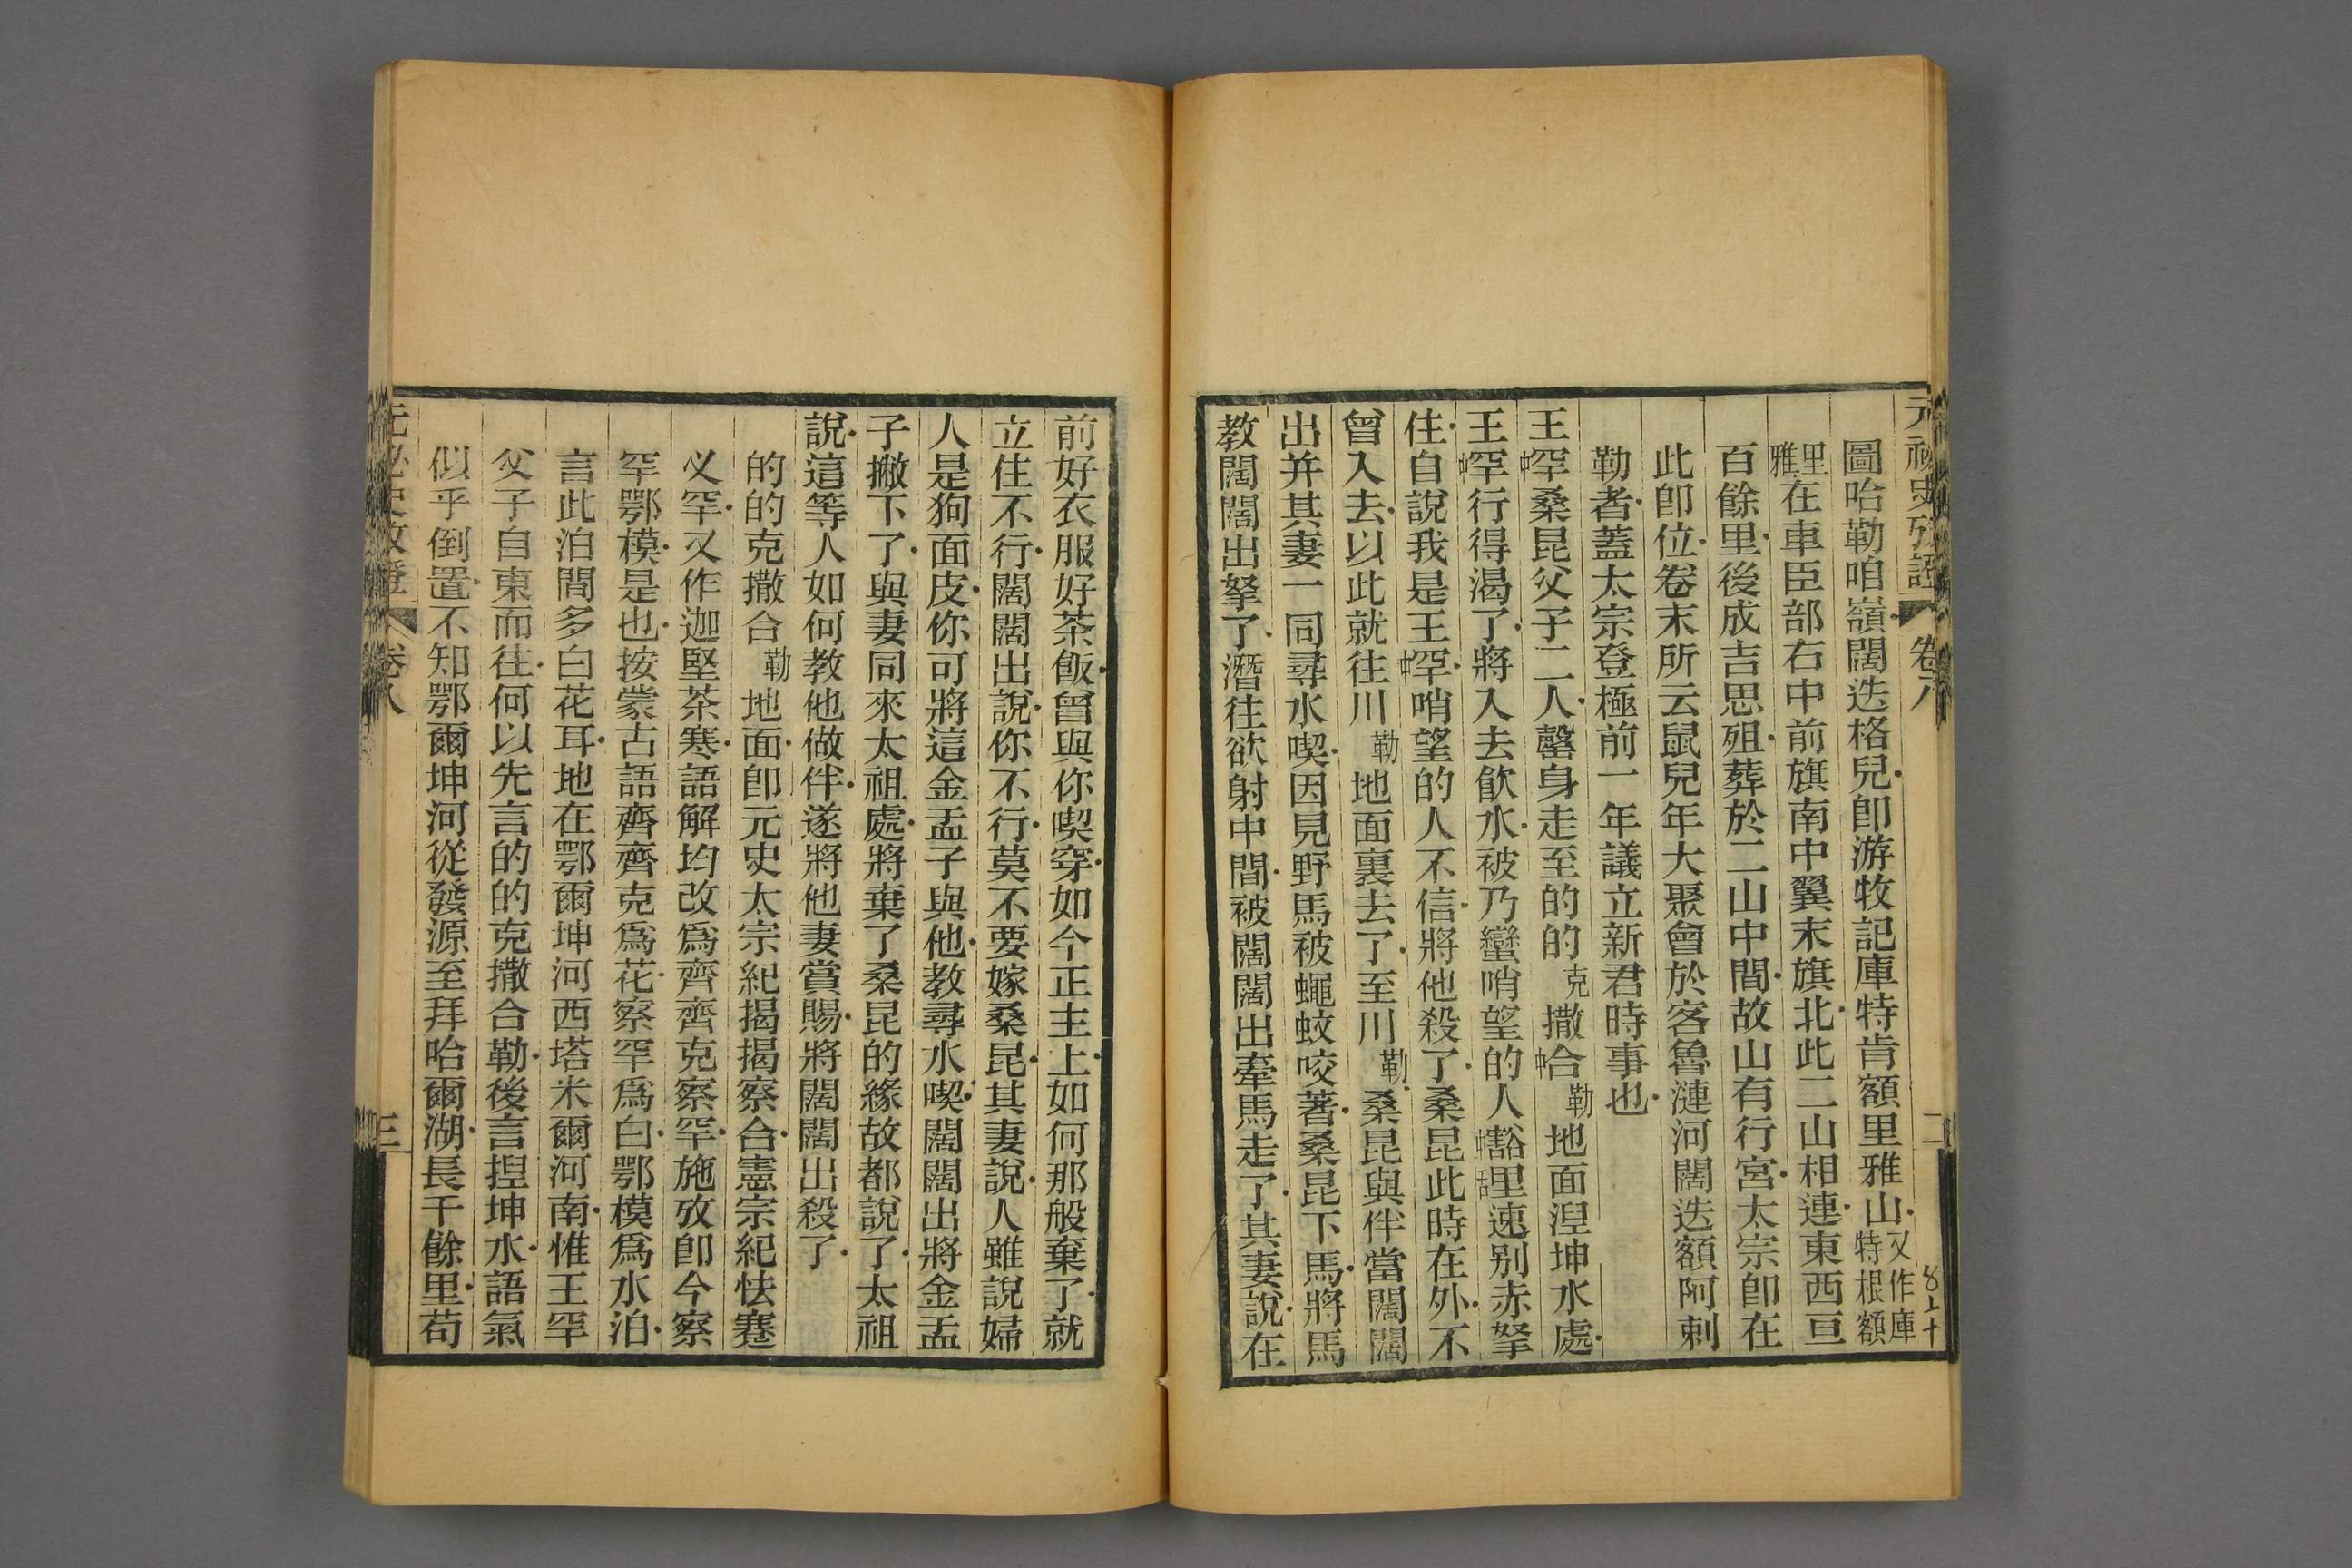 元祕史攷證 卷八 二
圖哈勒咱嶺闊迭格兒卽游牧記庫特肯額里雅山又作庫特根額
里雅在車臣部右中前旗南中翼末旗北此二山相連東西亘
百餘里後成吉思殂葬於二山中間故山有行宮太宗卽在
此卽位卷末所云鼠兒年大聚會於客魯漣河闊迭額阿剌
勒者蓋太宗登極前一年議立新君時事也
王中罕桑昆父子二人罄身走至的的克撒中合勒地面湼坤水處
王中罕行得渴了將入去飮水被乃蠻哨望的人中豁舌里速別赤拏
住自說我是王中罕哨望的人不信將他殺了桑昆此時在外不
曾入去以此就往川勒地面裏去了至川勒桑昆與伴當闊闊
出并其妻一同尋水喫因見野馬被蠅蚊咬著桑昆下馬將馬
教闊闊出拏了潛往欲射中間被闊闊出牽馬走了其妻說在
前好衣服好茶飯曾與你喫穿如今正主上如何那般棄了就
立住不行闊闊出說你不行莫不要嫁桑昆其妻說人雖說婦
人是狗面皮你可將這金盂子與他教尋水喫闊闊出將金盂
子撇下了與妻同來太祖處將棄了桑昆的緣故都說了太祖
說這等人如何教他做伴遂將他妻賞賜將闊闊出殺了
的的克撒合勒地面卽元史太宗紀揭揭察合憲宗紀怯蹇
义罕又作迦堅茶寒語解均改爲齊齊克察罕施攷卽今察
罕鄂模是也按蒙古語齊齊克爲花察罕爲白鄂模爲水泊
言此泊間多白花耳地在鄂爾坤河西塔米爾河南惟王罕
父子自東而往何以先言的的克撒合勒後言揑坤水語氣
似乎倒置不知鄂爾坤河從發源至拜哈爾湖長千餘里苟
元祕史攷證 卷八 三